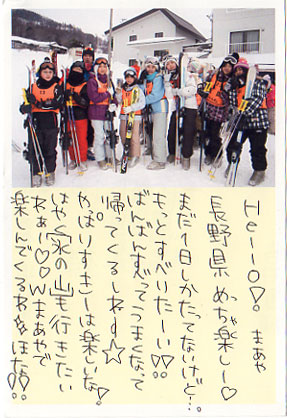 Hello♡! まあや
長野県めっちゃ楽しー♡
まだ1日しかたってないけど…。
もっとすべりたーい!!
ばんばんすべってうまくなって
帰ってくるしねす☆
やっぱりすきーは楽しいな♪
はやく氷の山も行きたい
わぁい♡♡Wまあやで
楽しんでくるわなほな!!